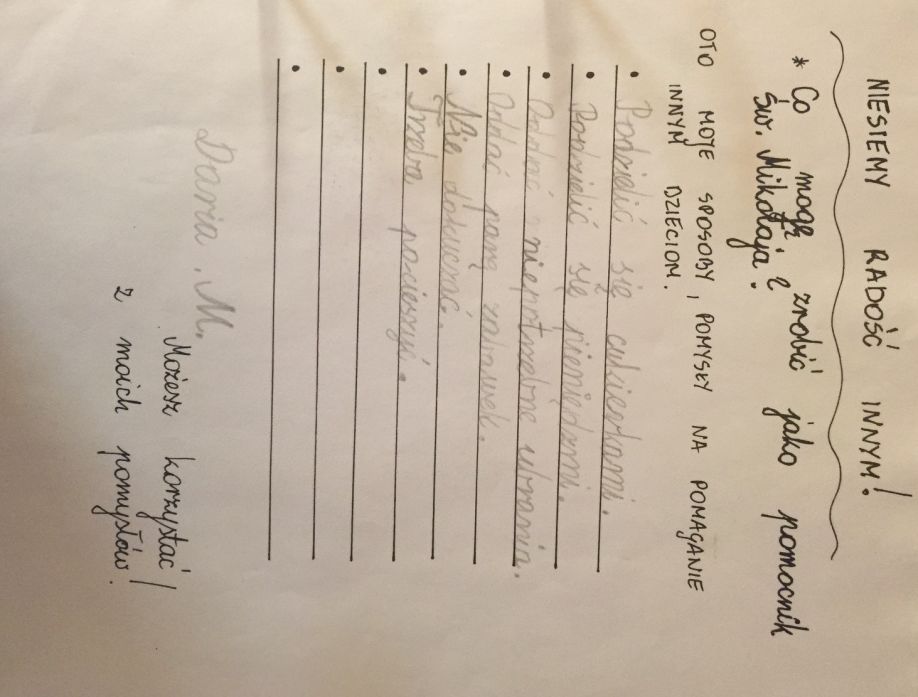 NIESIEMY RADOŚĆ INNYM!
* Co mogę zrobić jako pomocnik
Św. Mikołaja?
OTO MOJE SPOSOBY, POMYSŁY NA POMAGANIE
INNYM DZIECIOM.
• Podzielić się cukierkami.
• Podzielić się pieniędzmi.
• Oddać niepotrzebne ubrania.
• Oddać parę zabawek.
• Nie dokuczać.
• Trzeba pocieszyć.
•
•
•
Daria M.
Możesz korzystać
z moich pomysłów!